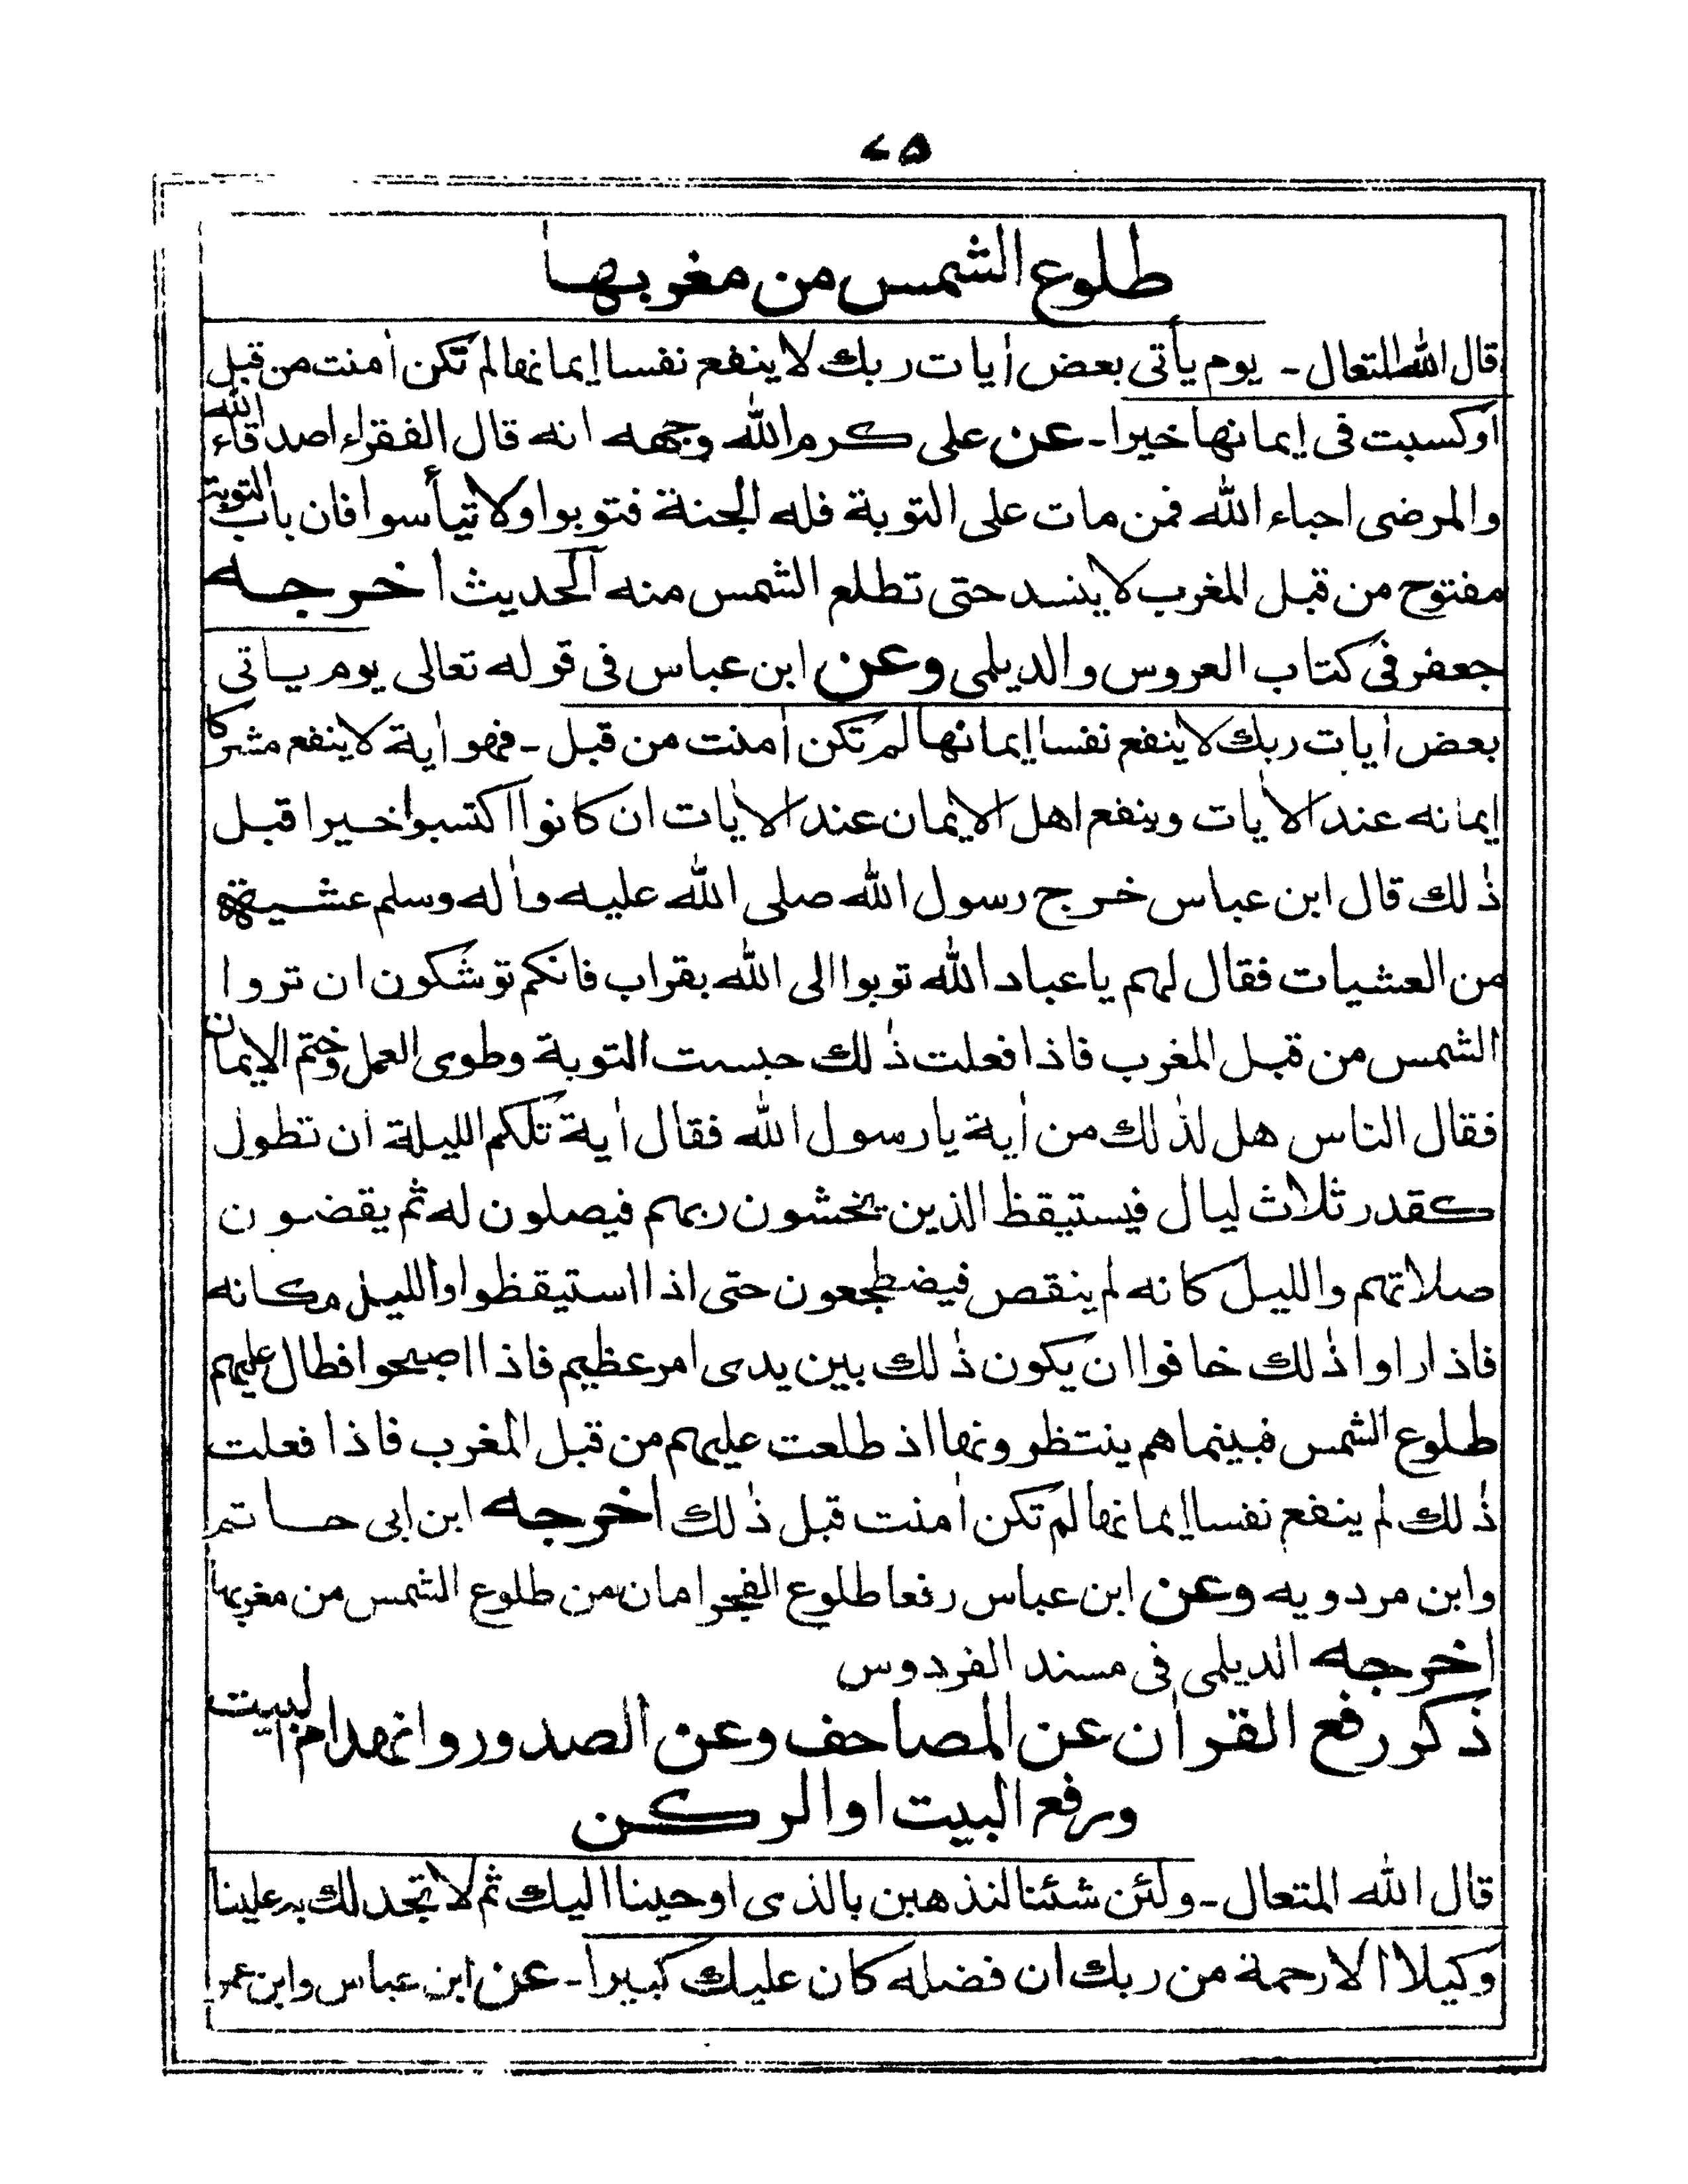 ٧٥
طلوع الشمس من مغربها
قال الله المتعال ـ يوم يأتى بعض اٰيات ربك لا ينفع نفسا إيمانها لم تكن اٰمنت من قبل
او كسبت فى إيمانها خيرا ـ عن على كرم الله وجهه انه قال الفقراء اصدقاء الله
والمرضى احباء الله فمن مات على التوبة فله الجنة فتوبوا ولا تيأسوا فان باب التوبة
مفتوح من قبل المغرب لا ينسد حتى تطلع الشمس منه الحديث اخرجه
جعفر فى كتاب العروس والديلمى وعن ابن عباس فى قوله تعالى يوم ياتى
بعض اٰيات ربك لا ينفع نفسا إيمانها لم تكن اٰمنت من قبل ـ فهو اٰية لا ينفع مشركا
إيمانه عند الاٰيات وينفع اهل الايمان عند الاٰيات ان كانوا اكتسبوا خيرا قبل
ذٰلك قال ابن عباس خرج رسول الله صلى الله عليه واٰله وسلم عشية
من العشيات فقال لهم يا عباد الله توبوا الى الله بقراب فانكم توشكون ان تروا
الشمس من قبل المغرب فاذا فعلت ذٰلك حبست التوبة وطوى العمل وختم الايمان
فقال الناس هل لذٰلك من اٰية يا رسول الله فقال اٰية تلكم الليلة ان تطول
كقدر ثلاث ليال فيستيقظ الذين يخشون ربهم فيصلون له ثم يقضون
صلاتهم والليل كانه لم ينقص فيضطجعون حتى اذا استيقظوا والليل مكانه
فاذا راوا ذٰلك خافوا ان يكون ذٰلك بين يدى امر عظيم فاذا اصبحوا فطال عليهم
طلوع الشمس فبينما هم ينتظرونها اذ طلعت عليهم من قبل المغرب فاذا فعلت
ذٰلك لم ينفع نفسا إيمانها لم تكن اٰمنت قبل ذٰلك اخرجه ابن ابى حاتم
وابن مردويه وعن ابن عباس رفعا طلوع الفجر امان من طلوع الشمس من مغربها
اخرجه الديلمى فى مسند الفردوس
ذكر رفع القراٰن عن المصاحف وعن الصدور وانهدام البيت
ورفع البيت او الركن
قال الله المتعال ـ ولئن شئنا لنذهبن بالذى اوحينا اليك ثم لا تجد لك به علينا
وكيلا الا رحمة من ربك ان فضله كان عليك كبيرا ـ عن ابن عباس وابن عمر